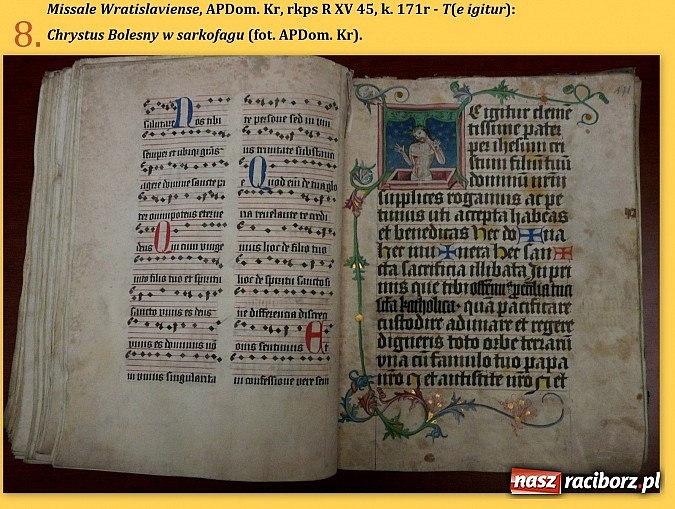 Missale Wratislaviense, APDom. Kr, rkps R XV 45, k. 171r - T(e igitur):
8. Chrystus Bolesny w sarkofagu (fot. APDom. Kr).
Nos tibi
salutare
semper et ubiq; grãs
agere domine sancte p
ter omnipotens eterne
deus Qui cum unige
nito filio tuo et spiritu
sancto unus es deus
unus es dominus nõ
in unius singularita
te persone sed in uni
us trinitate substantie
Quod eni de tua glo
ria revelante te credi
mus hoc de filio tuo
hoc de spiritu sancto si
ne differentia discreti
onis sentimus Et
in confessione vere sem
e igitur cleme
tissime pater
per ihesum cri
stum filiũ tuũ
dominũ nrm
supplices rogamus ac pe
timus uti accepta habeas
et benedicas hec do na
hec mu nera hec san
cta sacrificia illibata In pri
mis que tibi offerimus
scta katholica quã pacificare
custodire adunare et regere
digneris toto orbe terrarũ
vna cũ famulo tuo papa
nro et antistite nro et
171
nasz raciborz.pl